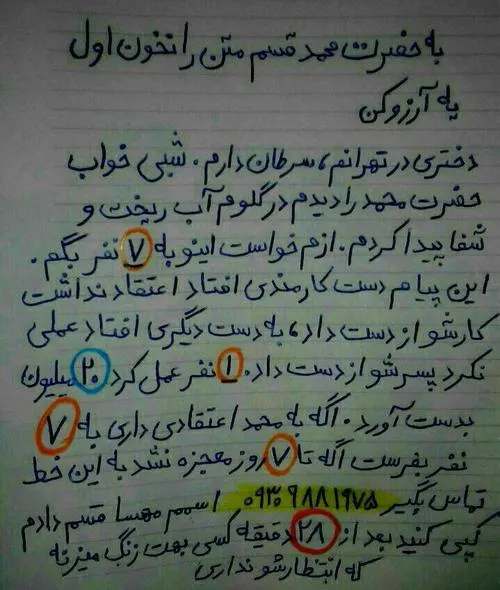 به حضرت محمد قسم متن را نخون اول
یه آرزو کن
دختری در تهرانم، سرطان دارم. شبی خواب
حضرت محمد را دیدم در گلوم آب ریخت و
شفا پیدا کردم. ازم خواست اینو به ۷ نفر بگم.
این پیام دست کارمندی افتاد اعتقاد نداشت
کارشو از دست داد، به دست دیگری افتاد عملی
نکرد پسرشو از دست داد. ۱ نفر عمل کرد ۲۰ میلیون
بدست آورد. اگه به محمد اعتقادی داری به ۷
نفر بفرست اگه تا ۷ روز معجزه نشد به این خط
تماس بگیر ۰۹۳۰۹۸۸۱۹۷۵ اسمم مهسا قسم دادم
کپی کنید بعد از ۲۸ دقیقه کسی بهت زنگ میزنه
که انتظارشو نداری